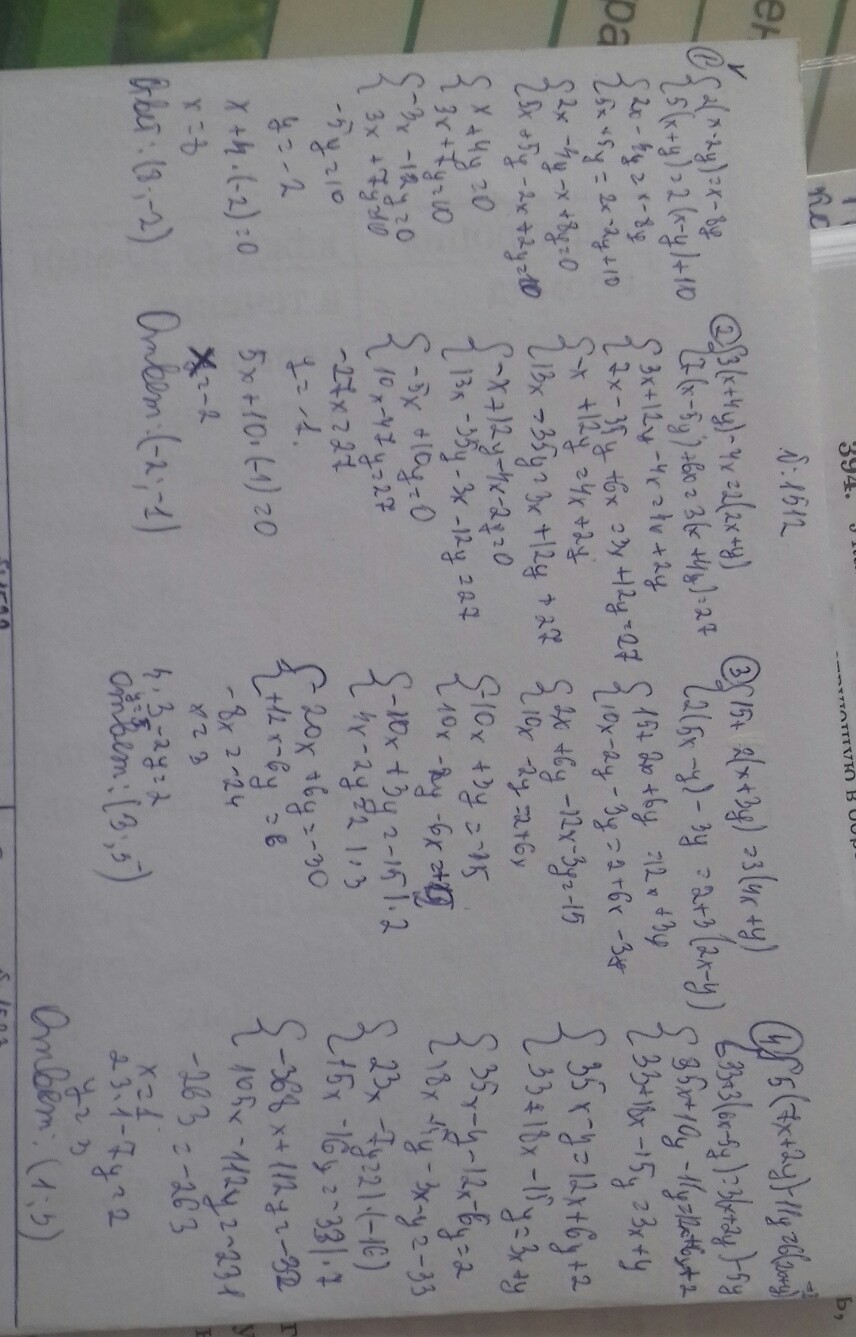 394.
№ 1512
① { 2(x-2y)=x-8y
{ 5(x+y)=2(x-y)+10
{ 2x-4y=x-8y
{ 5x+5y=2x-2y+10
{ 2x-4y-x+8y=0
{ 5x+5y-2x+2y=10
{ x+4y=0
{ 3x+7y=10
{ -3x-12y=0
{ 3x+7y=10
-5y=10
y=-2
x+4·(-2)=0
x=8
Ответ: (8;-2)
② { 3(x+4y)-4x=2(2x+y)
{ 7(x-5y)+6x=3(x+4y)=27
{ 3x+12y-4x=4x+2y
{ 7x-35y+6x=3x+12y=27
{ -x+12y=4x+2y
{ 13x-35y=3x+12y+27
{ -x+12y-4x-2y=0
{ 13x-35y-3x-12y=27
{ -5x+10y=0
{ 10x-47y=27
-27x=27
y=-1.
5x+10·(-1)=0
x=-2
Ответ: (-2;-1)
③ { 15+2(x+3y)=3(4x+y)
{ 2(5x-y)-3y=2+3(2x-y)
{ 15+2x+6y=12x+3y
{ 10x-2y-3y=2+6x-3y
{ 2x+6y-12x-3y=-15
{ 10x-2y=2+6x
{ -10x+3y=-15
{ 10x-2y-6x=2
{ -10x+3y=-15|·2
{ 4x-2y=2|·3
{ -20x+6y=-30
{ +12x-6y=6
-8x=-24
x=3
4·3-2y=2
y=5
Ответ: (3;5)
④ { 5(7x+2y)-11y=6(2x+y)+2
{ 33+3(6x-5y)=3(x+2y)-5y
{ 35x+10y-11y=12x+6y+2
{ 33+18x-15y=3x+y
{ 35x-y=12x+6y+2
{ 33+18x-15y=3x+y
{ 35x-y-12x-6y=2
{ 18x-15y-3x-y=-33
{ 23x-7y=2|·(-16)
{ 15x-16y=-33|·7
{ -368x+112y=-32
{ 105x-112y=-231
-263=-263
x=1
23·1-7y=2
y=3
Ответ: (1;3)